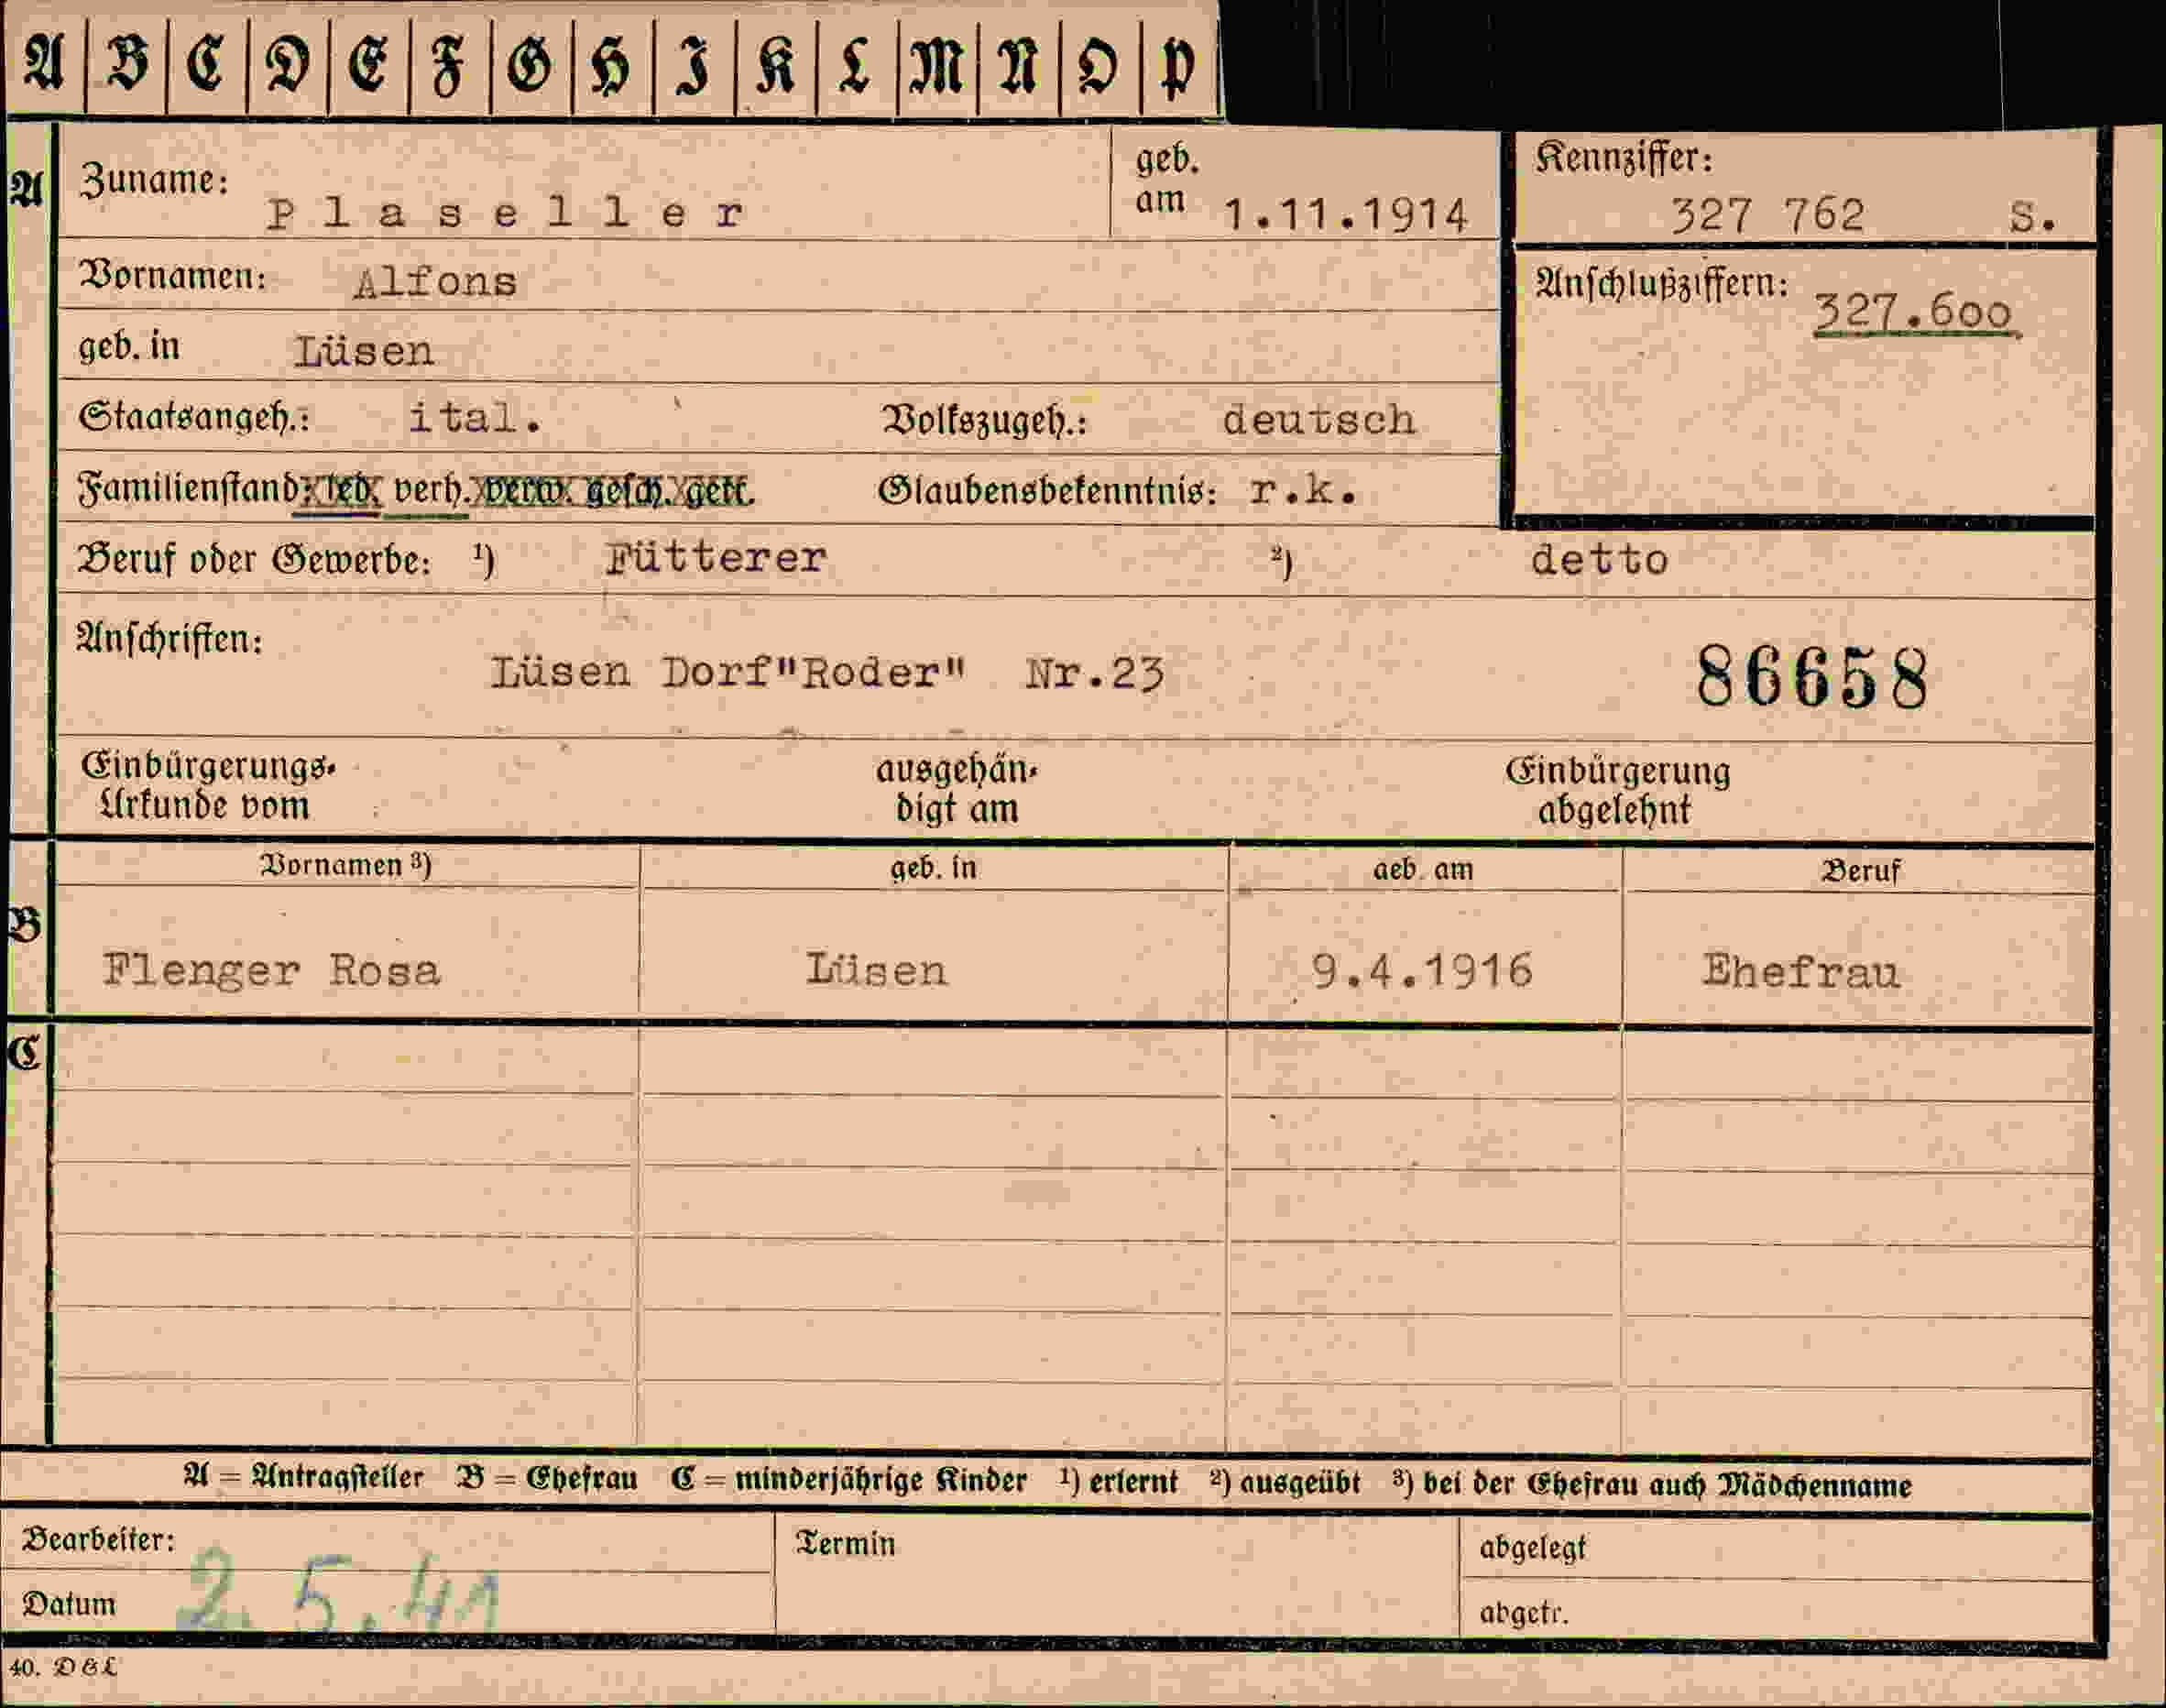 A B C D E F G H I K L M N O P
A Zuname: Plaseller geb. am 1.11.1914 Kennziffer: 327 762 S.
Vornamen: Alfons Anschlußziffern: 327.600
geb. in Lüsen
Staatsangeh.: ital. Volkszugeh.: deutsch
Familienstand: led. verh. verw. gesch. getr. Glaubensbekenntnis: r.k.
Beruf oder Gewerbe: ¹) Fütterer ²) detto
Anschriften: Lüsen Dorf"Roder" Nr.23 86658
Einbürgerungs- ausgehän- Einbürgerung
Urkunde vom digt am abgelehnt
Vornamen ³) geb. in geb. am Beruf
B Plenger Rosa Lüsen 9.4.1916 Ehefrau
C
A = Antragsteller B = Ehefrau C = minderjährige Kinder ¹) erlernt ²) ausgeübt ³) bei der Ehefrau auch Mädchenname
Bearbeiter: Termin abgelegt
Datum 2.5.41 abgetr.
40. D&L